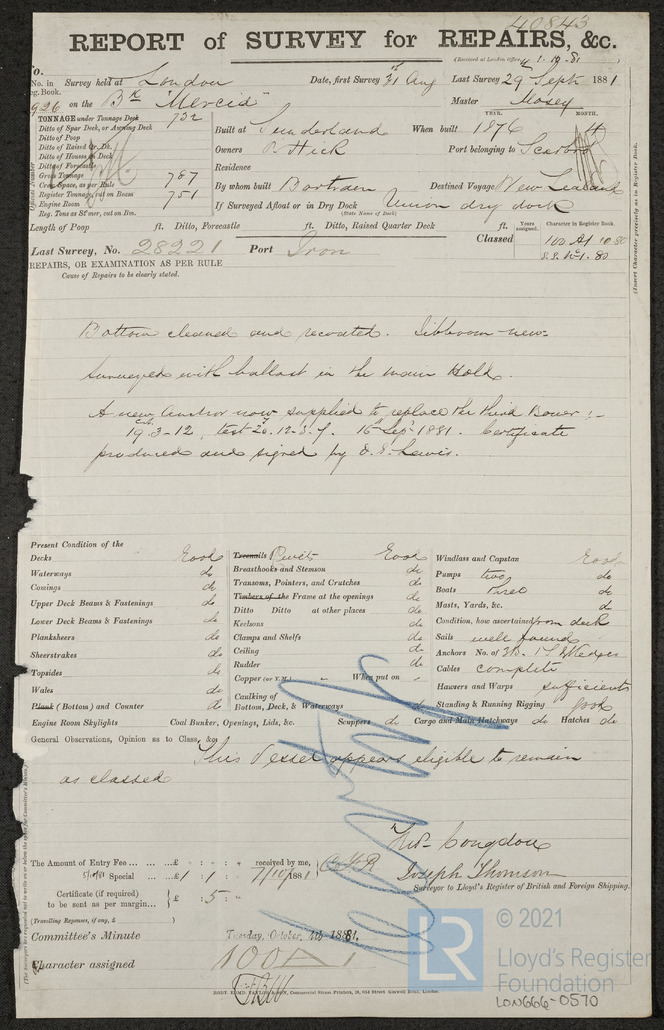 40843
REPORT of SURVEY for REPAIRS, &c.
(Received at London Office 1.10.81)
No. in Survey held at London Date, first Survey 31st Aug Last Survey 29th Septr 1881
Reg. Book.
926 on the Bk "Mercia" Master Mosey
TONNAGE under Tonnage Deck 732
Ditto of Spar Deck, or Awning Deck
Ditto of Poop
Ditto of Raised Qr. Dk.
Ditto of Houses of Deck
Ditto of Forecastle
Gross Tonnage 767
Crew Space, as per Rule
Register Tonnage, cut on Beam 751
Engine Room
Reg. Tons as St'mer, cut on Bm.
Built at Sunderland When built YEAR. 1876 MONTH. 4
Owners Hick Port belonging to Scarboro
Residence
By whom built Bartram Destined Voyage New Zealand
If Surveyed Afloat or in Dry Dock Union dry dock
(State Name of Dock)
Length of Poop ft. Ditto, Forecastle ft. Ditto, Raised Quarter Deck ft.
Years assigned. Character in Register Book.
Last Survey, No. 28221 Port Iron Classed 100 A1 10.80
S.S. No 1. 80
(Insert Character precisely as in Register Book.)
REPAIRS, OR EXAMINATION AS PER RULE
Cause of Repairs to be clearly stated.
Bottom cleaned and recoated. Jibboom new.
Surveyed with ballast in the main Hold.
A new anchor now supplied to replace the third Bower :-
Cwt. 19.3-12, test 20.12.3.7. 16 Sep 1881. Certificate
produced and signed by Lewis.
Present Condition of the
Decks Good
Waterways do
Comings do
Upper Deck Beams & Fastenings do
Lower Deck Beams & Fastenings do
Planksheers do
Sheerstrakes do
Topsides do
Wales do
Plank (Bottom) and Counter do
Treenails Rivets Good
Breasthooks and Stemson do
Transoms, Pointers, and Crutches do
Timbers of the Frame at the openings do
Ditto Ditto at other places do
Keelsons do
Clamps and Shelfs do
Ceiling do
Rudder do
Copper (or Y.M.) " When put on "
Caulking of
Bottom, Deck, & Waterways do
Windlass and Capstan Good
Pumps two do
Boats three do
Masts, Yards, &c. do
Condition, how ascertained from deck
Sails well found
Anchors No. of
Cables complete
Hawsers and Warps sufficient
Standing & Running Rigging good
Engine Room Skylights Coal Bunker, Openings, Lids, &c. Scuppers do Cargo and Main Hatchways do Hatches do
General Observations, Opinion as to Class, &c.
This Vessel appears eligible to remain
as classed
Thos. Congdon
Joseph Thomson
Surveyor to Lloyd's Register of British and Foreign Shipping.
The Amount of Entry Fee ... ... ... £ : : received by me,
5/10/81 Special ... £ 1 : 1 : 7/10/1881
Certificate (if required)
to be sent as per margin... £ : 5 :
(Travelling Expenses, if any, £ )
Committee's Minute Tuesday, October, 4th 1881.
Character assigned 100A1
LR
© 2021
Lloyd's Register
Foundation
LON666-0570